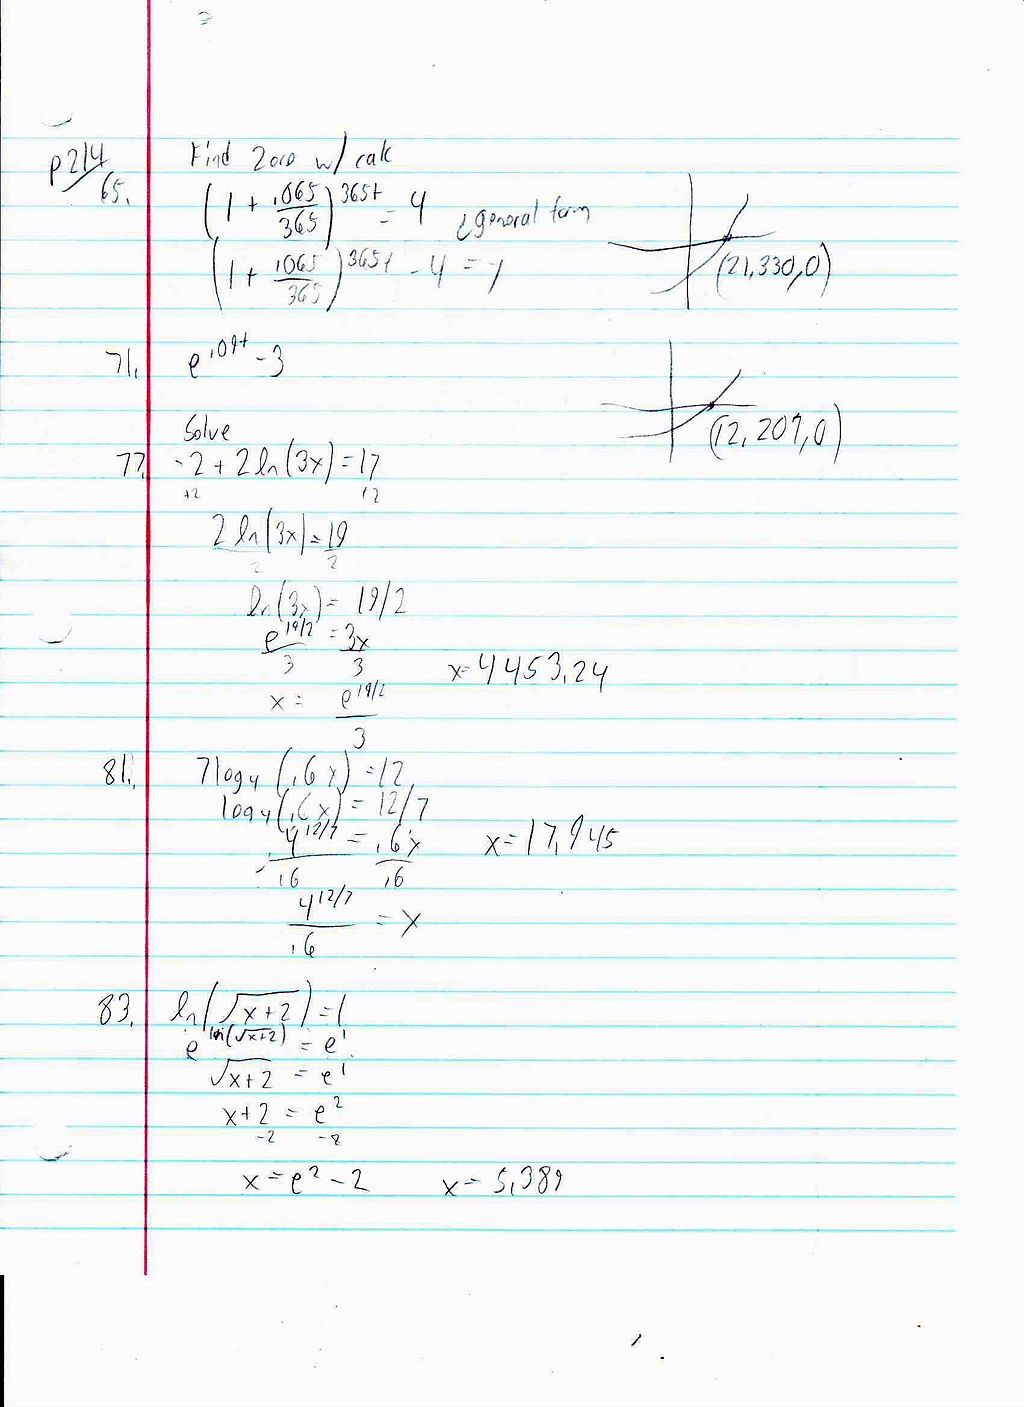 p214
65.
Find zero w/ calc
(1 + .065/365)^365t = 4
¿general form
(1 + .065/365)^365t - 4 = y
(21.330, 0)
71. e^.09t - 3
(12.207, 0)
Solve
77. -2 + 2 ln(3x) = 17
+2 +2
2 ln(3x) = 19
2 2
ln(3x) = 19/2
e^19/2 = 3x
3 3
x = 4453.24
x = e^19/2
3
81. 7log₄(.6x) = 12
log₄(.6x) = 12/7
4^12/7 = .6x
.6 .6
x = 17.945
4^12/7 = x
.6
83. ln(√x+2) = 1
e^ln(√x+2) = e^1
√x+2 = e^1
x+2 = e^2
-2 -2
x = e^2 - 2 x = 5.389